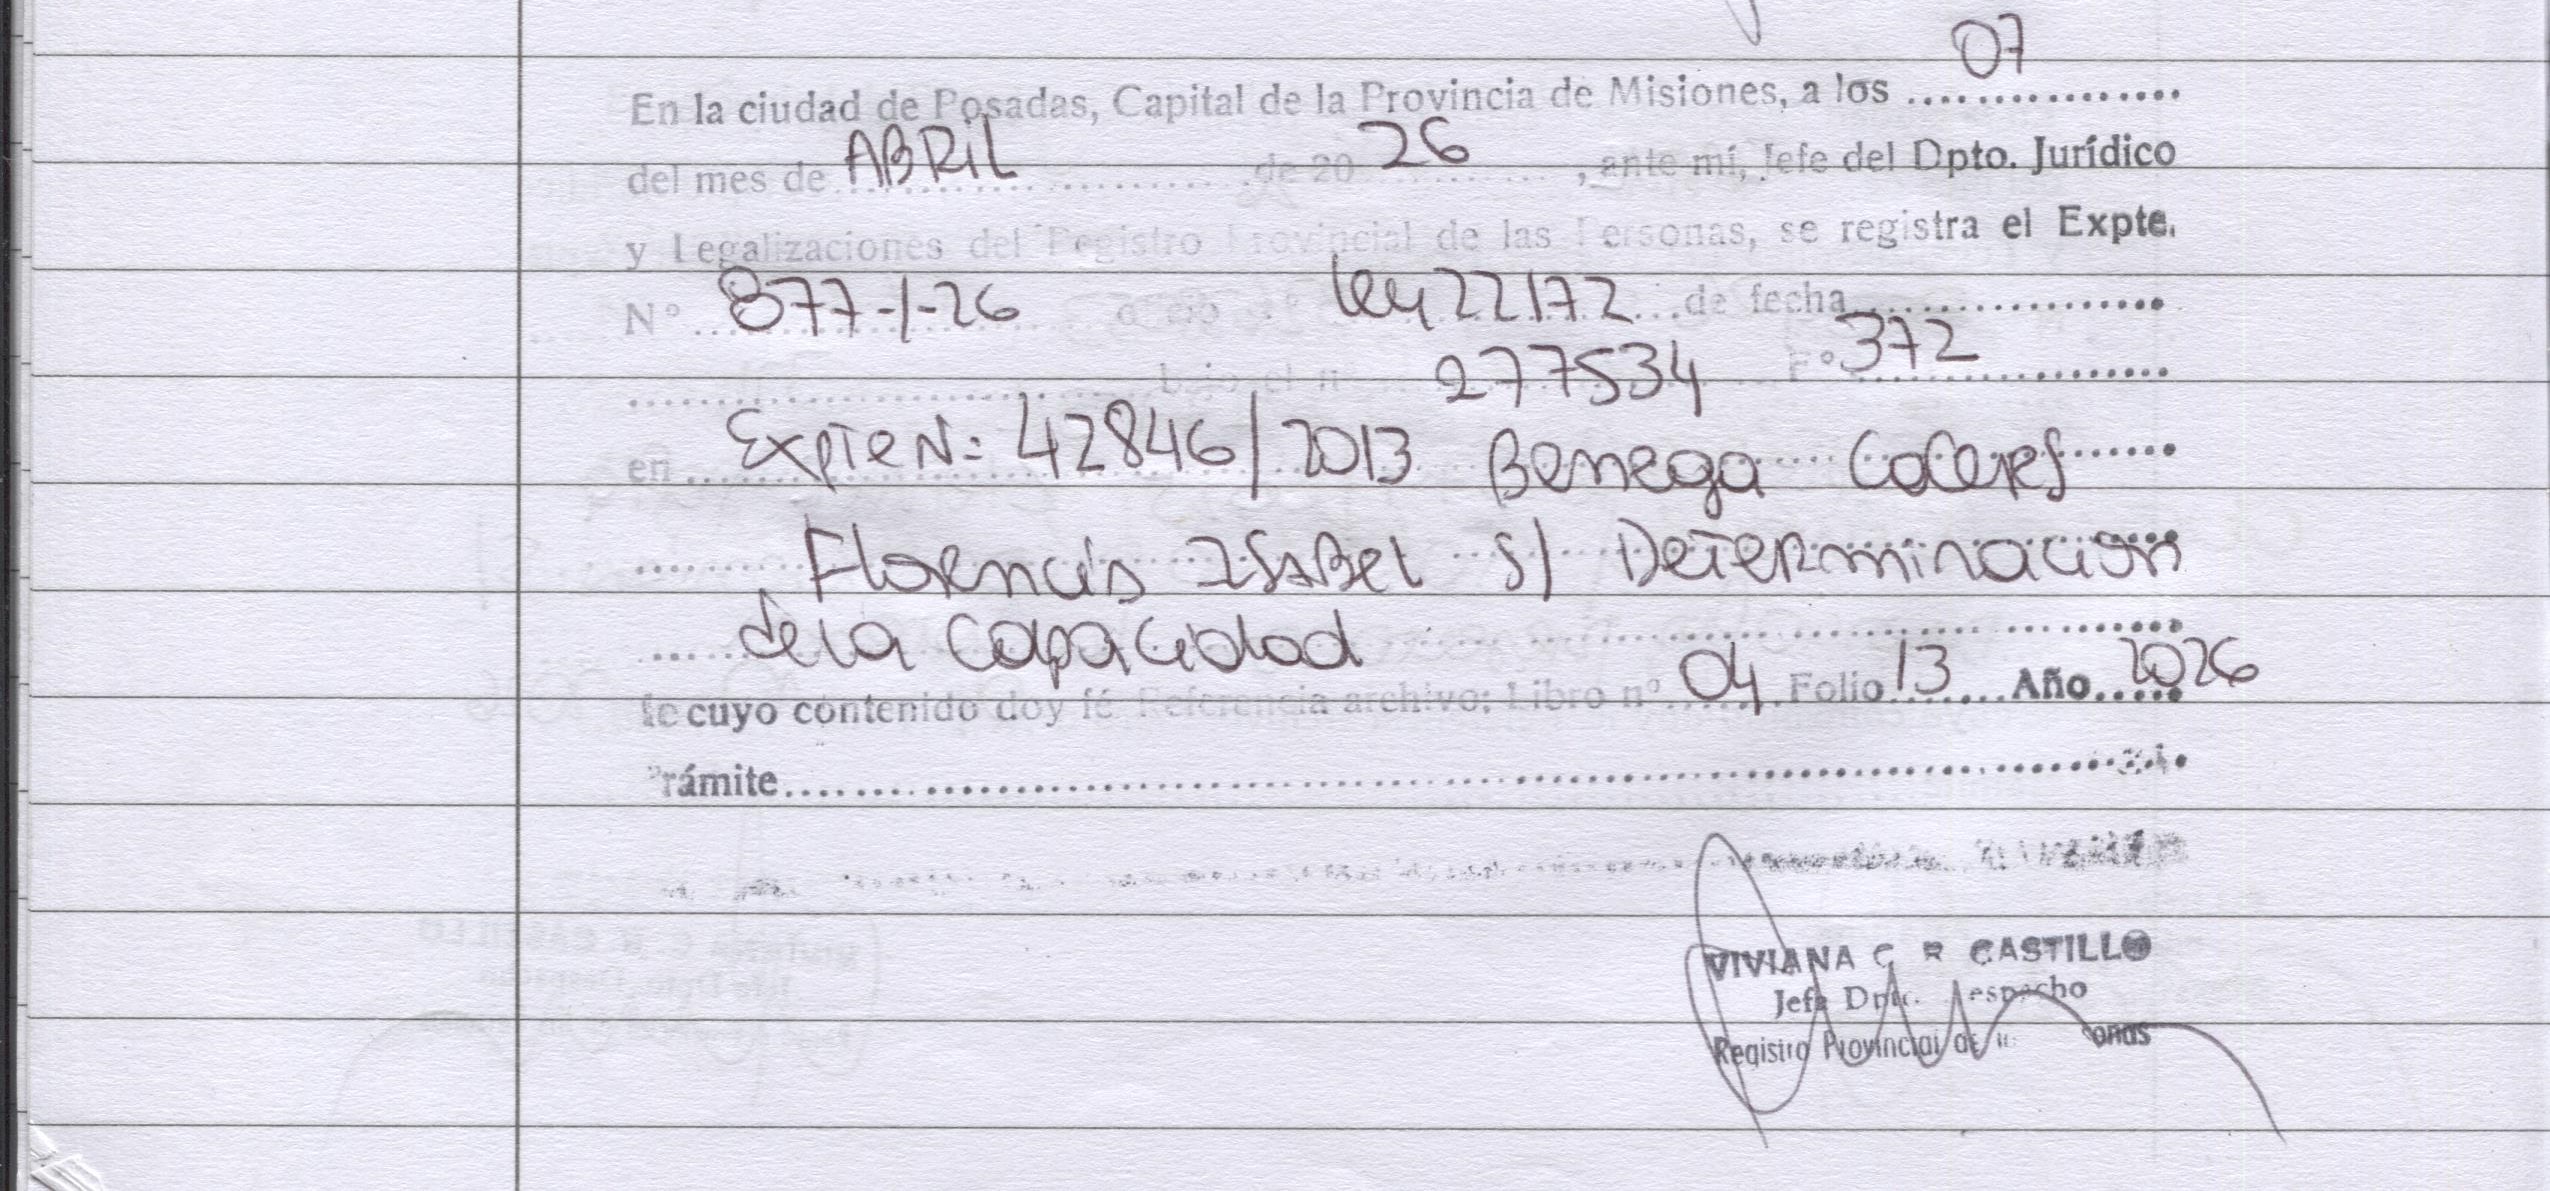 En la ciudad de Posadas, Capital de la Provincia de Misiones, a los 07
del mes de ABRIL de 20 26, ante mí, Jefe del Dpto. Jurídico
y Legalizaciones del Registro Provincial de las Personas, se registra el Expte.
Nº 877-1-26 oficio nº Ley 22172 de fecha
bajo el nº 277534 Fº 372
en Expte N: 42846/2013 Benega Coceres
Florencia Isabel S/ Determinacion
de la Capacidad
de cuyo contenido doy fé Referencia archivo: Libro nº 04 Folio 13 Año 2026
Trámite
VIVIANA C R CASTILLO
Jefa Dpto. Despacho
Registro Provincial de las Personas